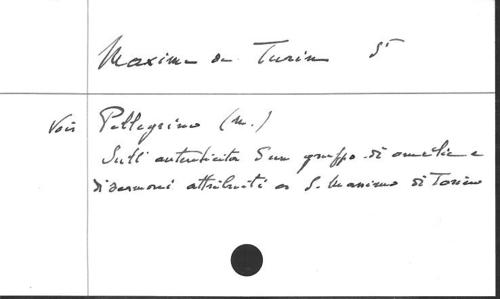 Maxime de Turin St
Voir Pellegrino (M.)
Sull'autenticità d'un gruppo di omelie e
di sermoni attribuiti a S. Massimo di Torino